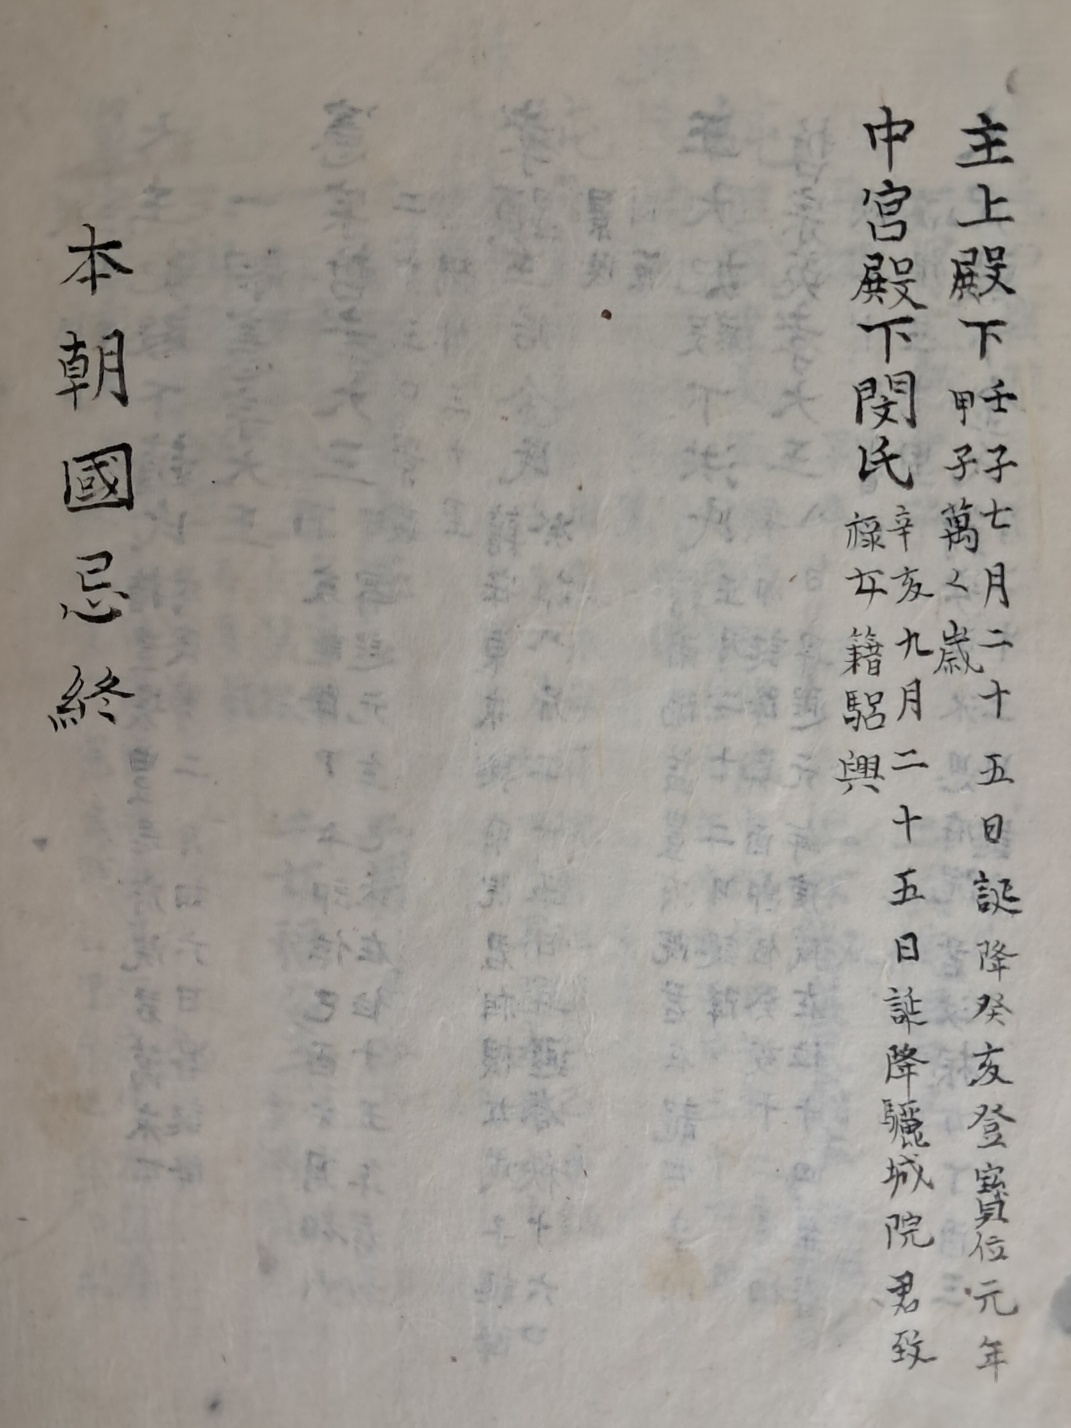 主上殿下
壬子七月二十五日誕降癸亥登寶位元年
甲子萬々歲
中宮殿下閔氏
辛亥九月二十五日誕降驪城院君致
祿女籍驪興
本朝國忌終